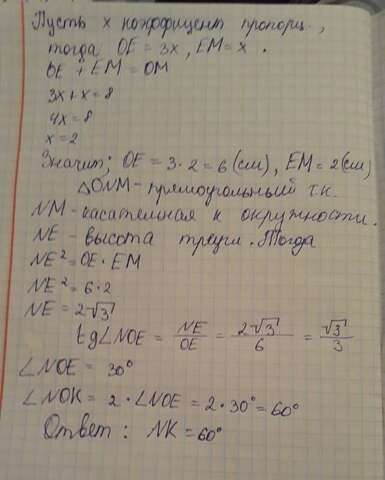 Пусть x коэффициент пропорц.,
тогда OE = 3x, EM = x.
OE + EM = OM
3x + x = 8
4x = 8
x = 2
Значит; OE = 3·2 = 6 (см), EM = 2 (см)
△ONM - прямоугольный т.к.
NM - касательная к окружности.
NE - высота треуг. Тогда
NE² = OE · EM
NE² = 6 · 2
NE = 2√3
tg∠NOE = NE/OE = 2√3/6 = √3/3
∠NOE = 30°
∠NOK = 2 · ∠NOE = 2 · 30° = 60°
Ответ: NK = 60°